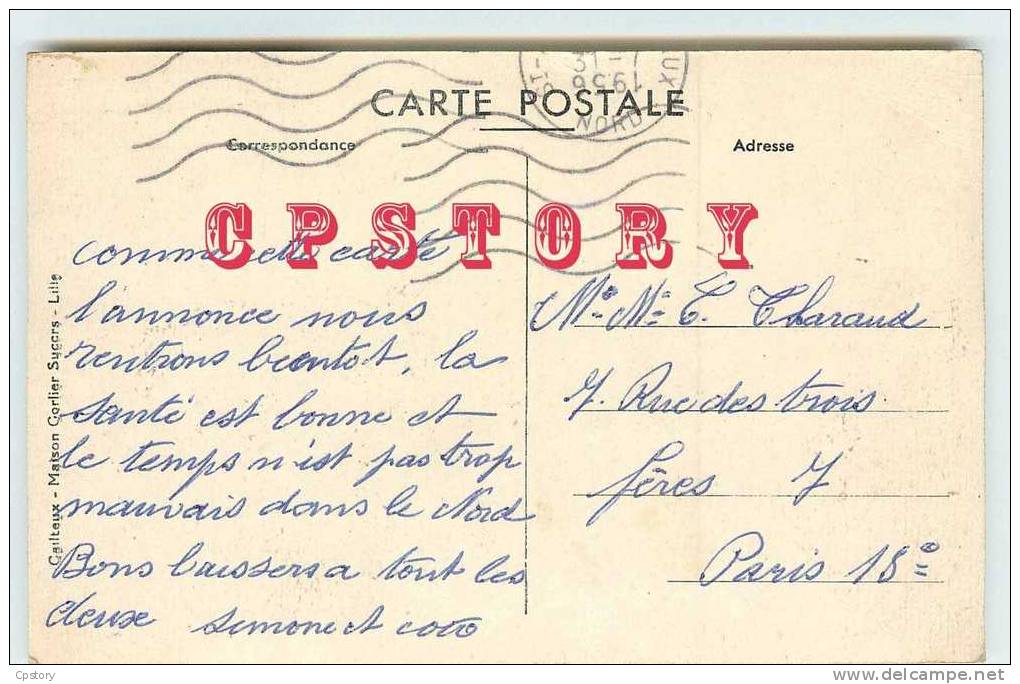 31-7
1956
NORD
CARTE POSTALE
Correspondance
Adresse
CPSTORY
comme cette carte
l'annonce nous
rentrons bientot, la
santé est bonne et
le temps n'est pas trop
mauvais dans le Nord
Bons baissers a tout les
deuxe simone et coco
Mr Me T. Tharaud
7. Rue des trois
fères 7
Paris 18e
Cailteux - Maison Gorlier Succrs - Lille
Cpstory
delcampe.net